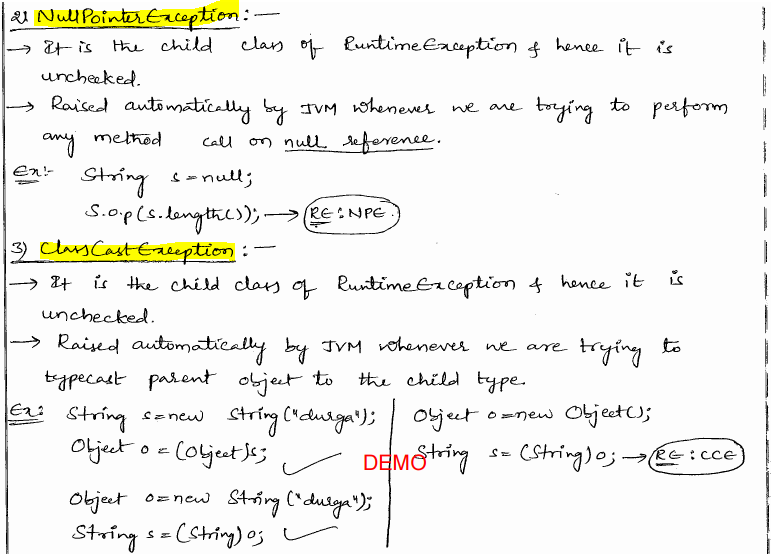 2) NullPointerException :—
→ It is the child class of RuntimeException & hence it is
unchecked.
→ Raised automatically by JVM whenever we are trying to perform
any method call on null reference.
Ex:- String s=null;
S.o.p(s.length()); → RE:NPE.
3) ClassCastException :—
→ It is the child class of RuntimeException & hence it is
unchecked.
→ Raised automatically by JVM whenever we are trying to
typecast parent object to the child type.
Ex: String s=new String("durga");
Object o=(Object)s; ✓
Object o=new String("durga");
String s=(String)o; ✓
Object o=new Object();
String s=(String)o; → RE:CCE
DEMO